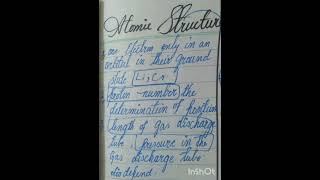 Atomic Structur
one electron only in an
orbital in their ground
state Li, Cr
proton-number, the
determination of position
length of gas discharge
tube, pressure in the
Gas discharge tube
depend.
InShOt